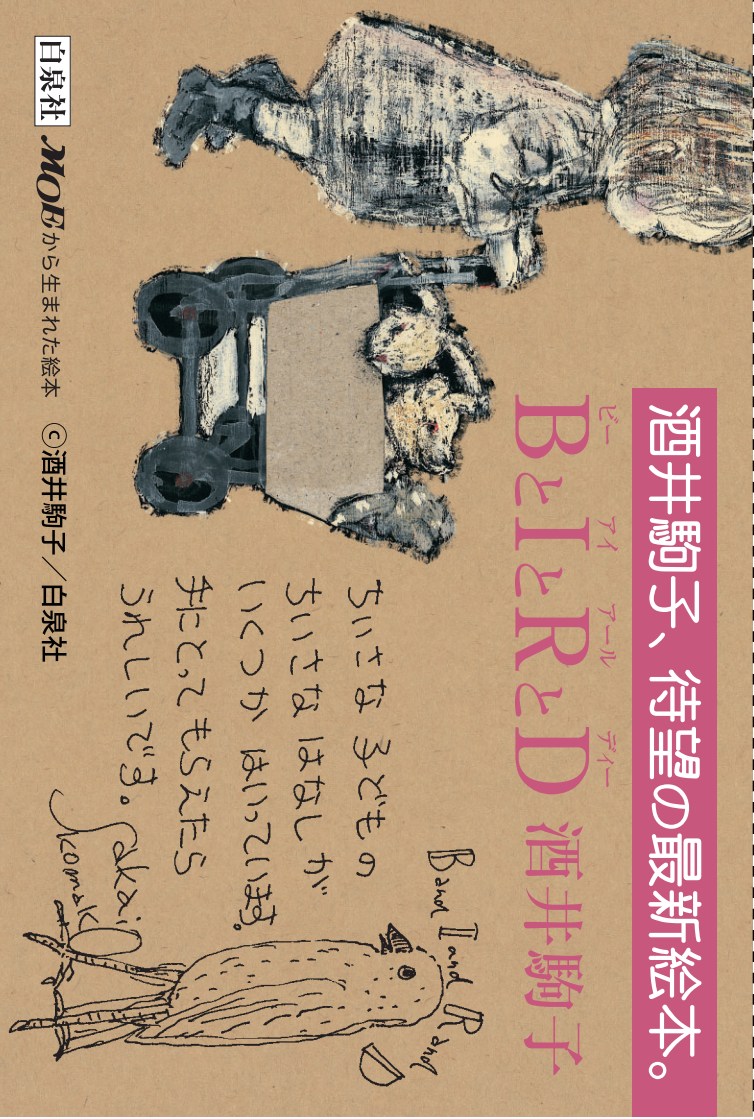 酒井駒子、待望の最新絵本。
BとIとRとD 酒井駒子
ビー アイ アール ディー
Band Iand Rand D
ちいさな 子どもの
ちいさな はなしが
いくつか はいっています。
手にとって もらえたら
うれしいです。
Sakai
komako
白泉社 MOEから生まれた絵本 ©酒井駒子／白泉社